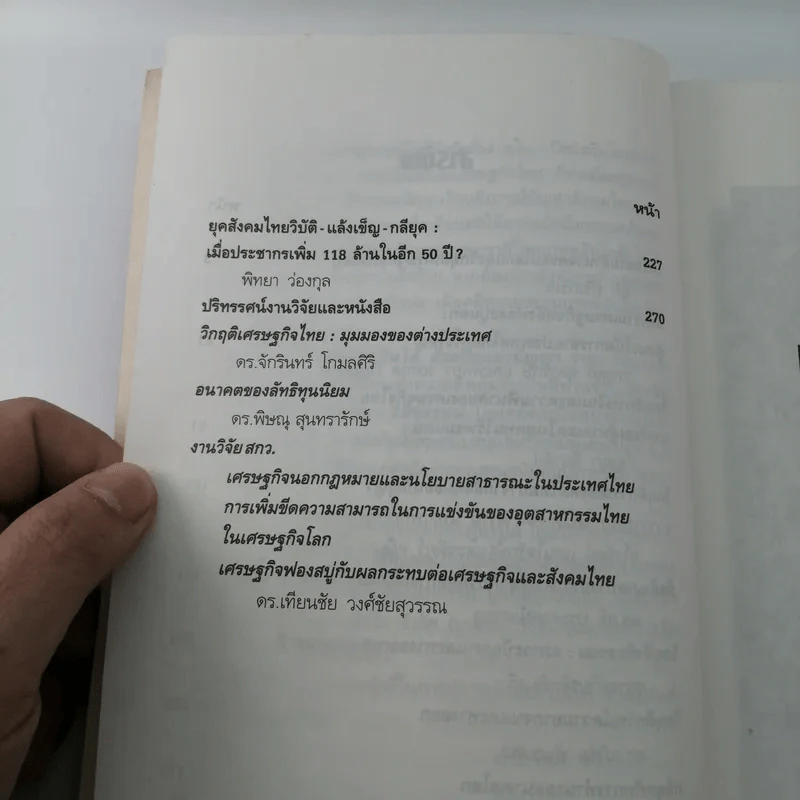 หน้า
ยุคสังคมไทยวิบัติ-แล้งเข็ญ-กลียุค :
เมื่อประชากรเพิ่ม 118 ล้านในอีก 50 ปี? 227
พิทยา ว่องกุล
ปริทรรศน์งานวิจัยและหนังสือ 270
วิกฤติเศรษฐกิจไทย : มุมมองของต่างประเทศ
ดร.จักรินทร์ โกมลศิริ
อนาคตของลัทธิทุนนิยม
ดร.พิษณุ สุนทรารักษ์
งานวิจัย สกว.
เศรษฐกิจนอกกฎหมายและนโยบายสาธารณะในประเทศไทย
การเพิ่มขีดความสามารถในการแข่งขันของอุตสาหกรรมไทย
ในเศรษฐกิจโลก
เศรษฐกิจฟองสบู่กับผลกระทบต่อเศรษฐกิจและสังคมไทย
ดร.เทียนชัย วงศ์ชัยสุวรรณ